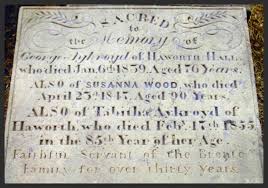 SACRED
to the
Memory of
George Aykroyd of HAWORTH HALL
who died Jan. 6th 1839. Aged 76 Years.
ALSO of SUSANNA WOOD, who died
April 23rd 1847. Aged 90 Years.
ALSO of Tabitha Aykroyd of
Haworth, who died Feb. 17th 1855
in the 85th Year of her Age.
Faithful Servant of the Bronte
Family for over thirty Years.